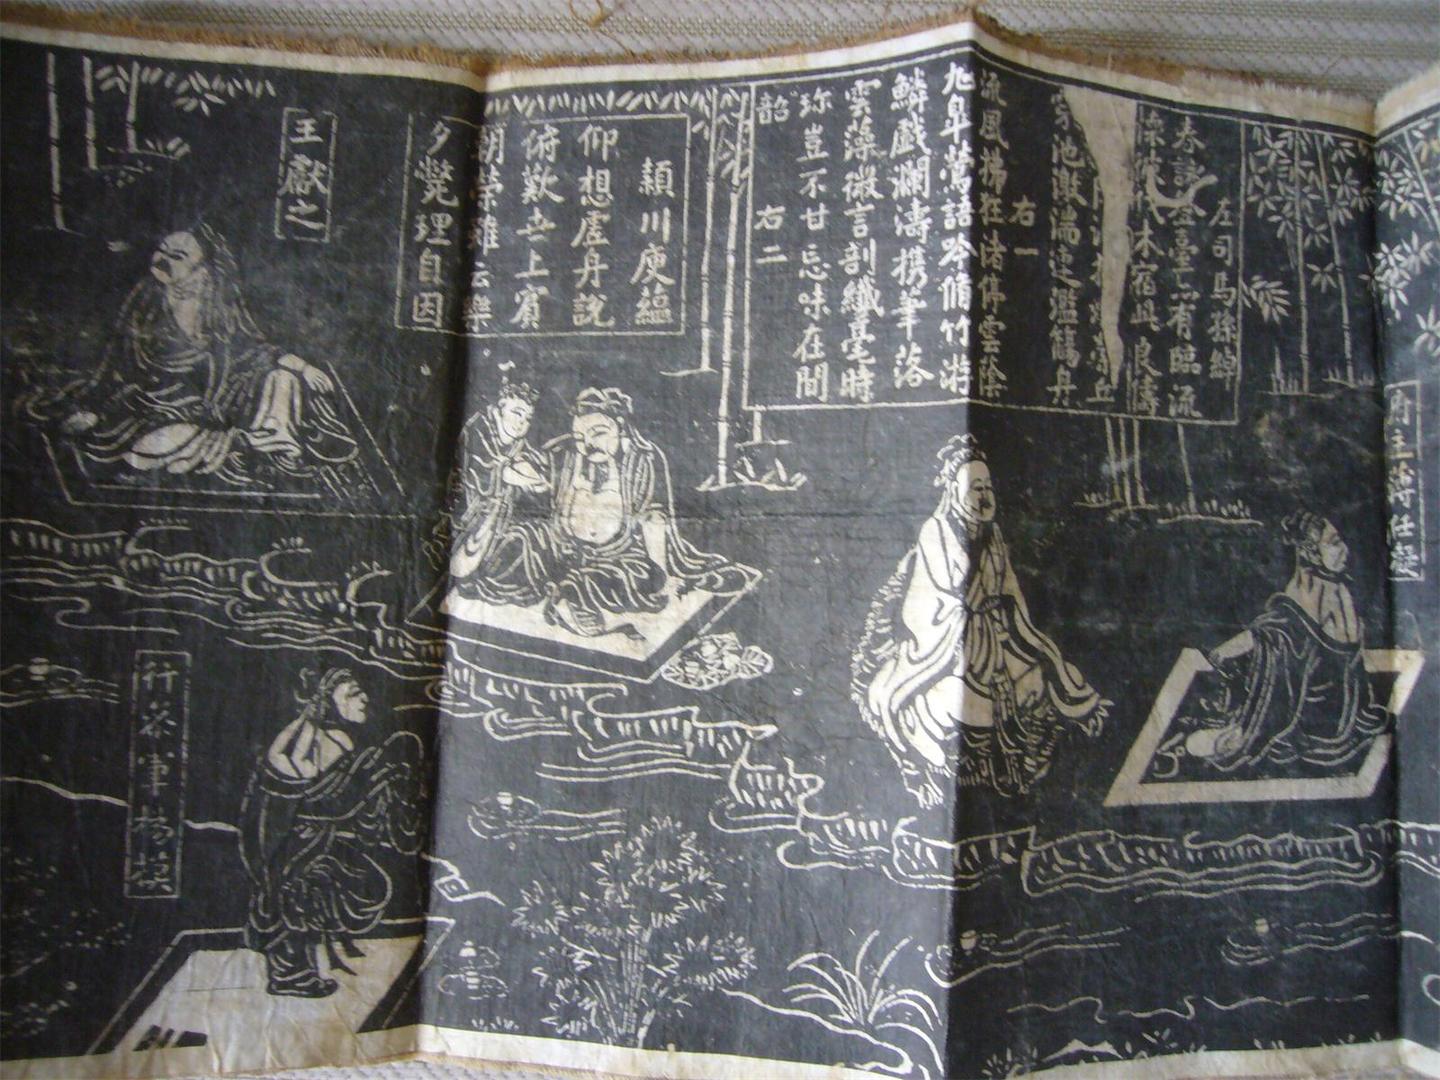 府主簿任
左司馬孫綽
春詠登臺亦有臨流
懷彼伐木宿此良儔
丘
穿池激湍連濫觴舟
右一
流風拂枉渚停雲蔭
九皐鶯語吟脩竹游
鱗戲瀾濤攜筆落
雲藻微言剖纖毫時
珍豈不甘忘味在聞
韶
右二
潁川庾蘊
仰想虛舟說
俯歎世上賓
朝榮雖云樂
夕斃理自因
王獻之
行參軍楊模